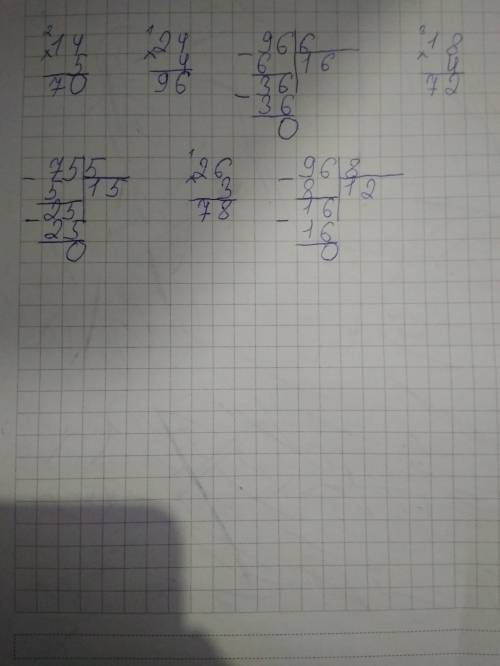 2 1 2
×14 ×24 -96|6 ×18
5 4 6 |16 4
70 96 -36 72
36
0
-75|5 1 -96|8
5 |15 ×26 8 |12
-25 3 -16
25 78 16
0 0